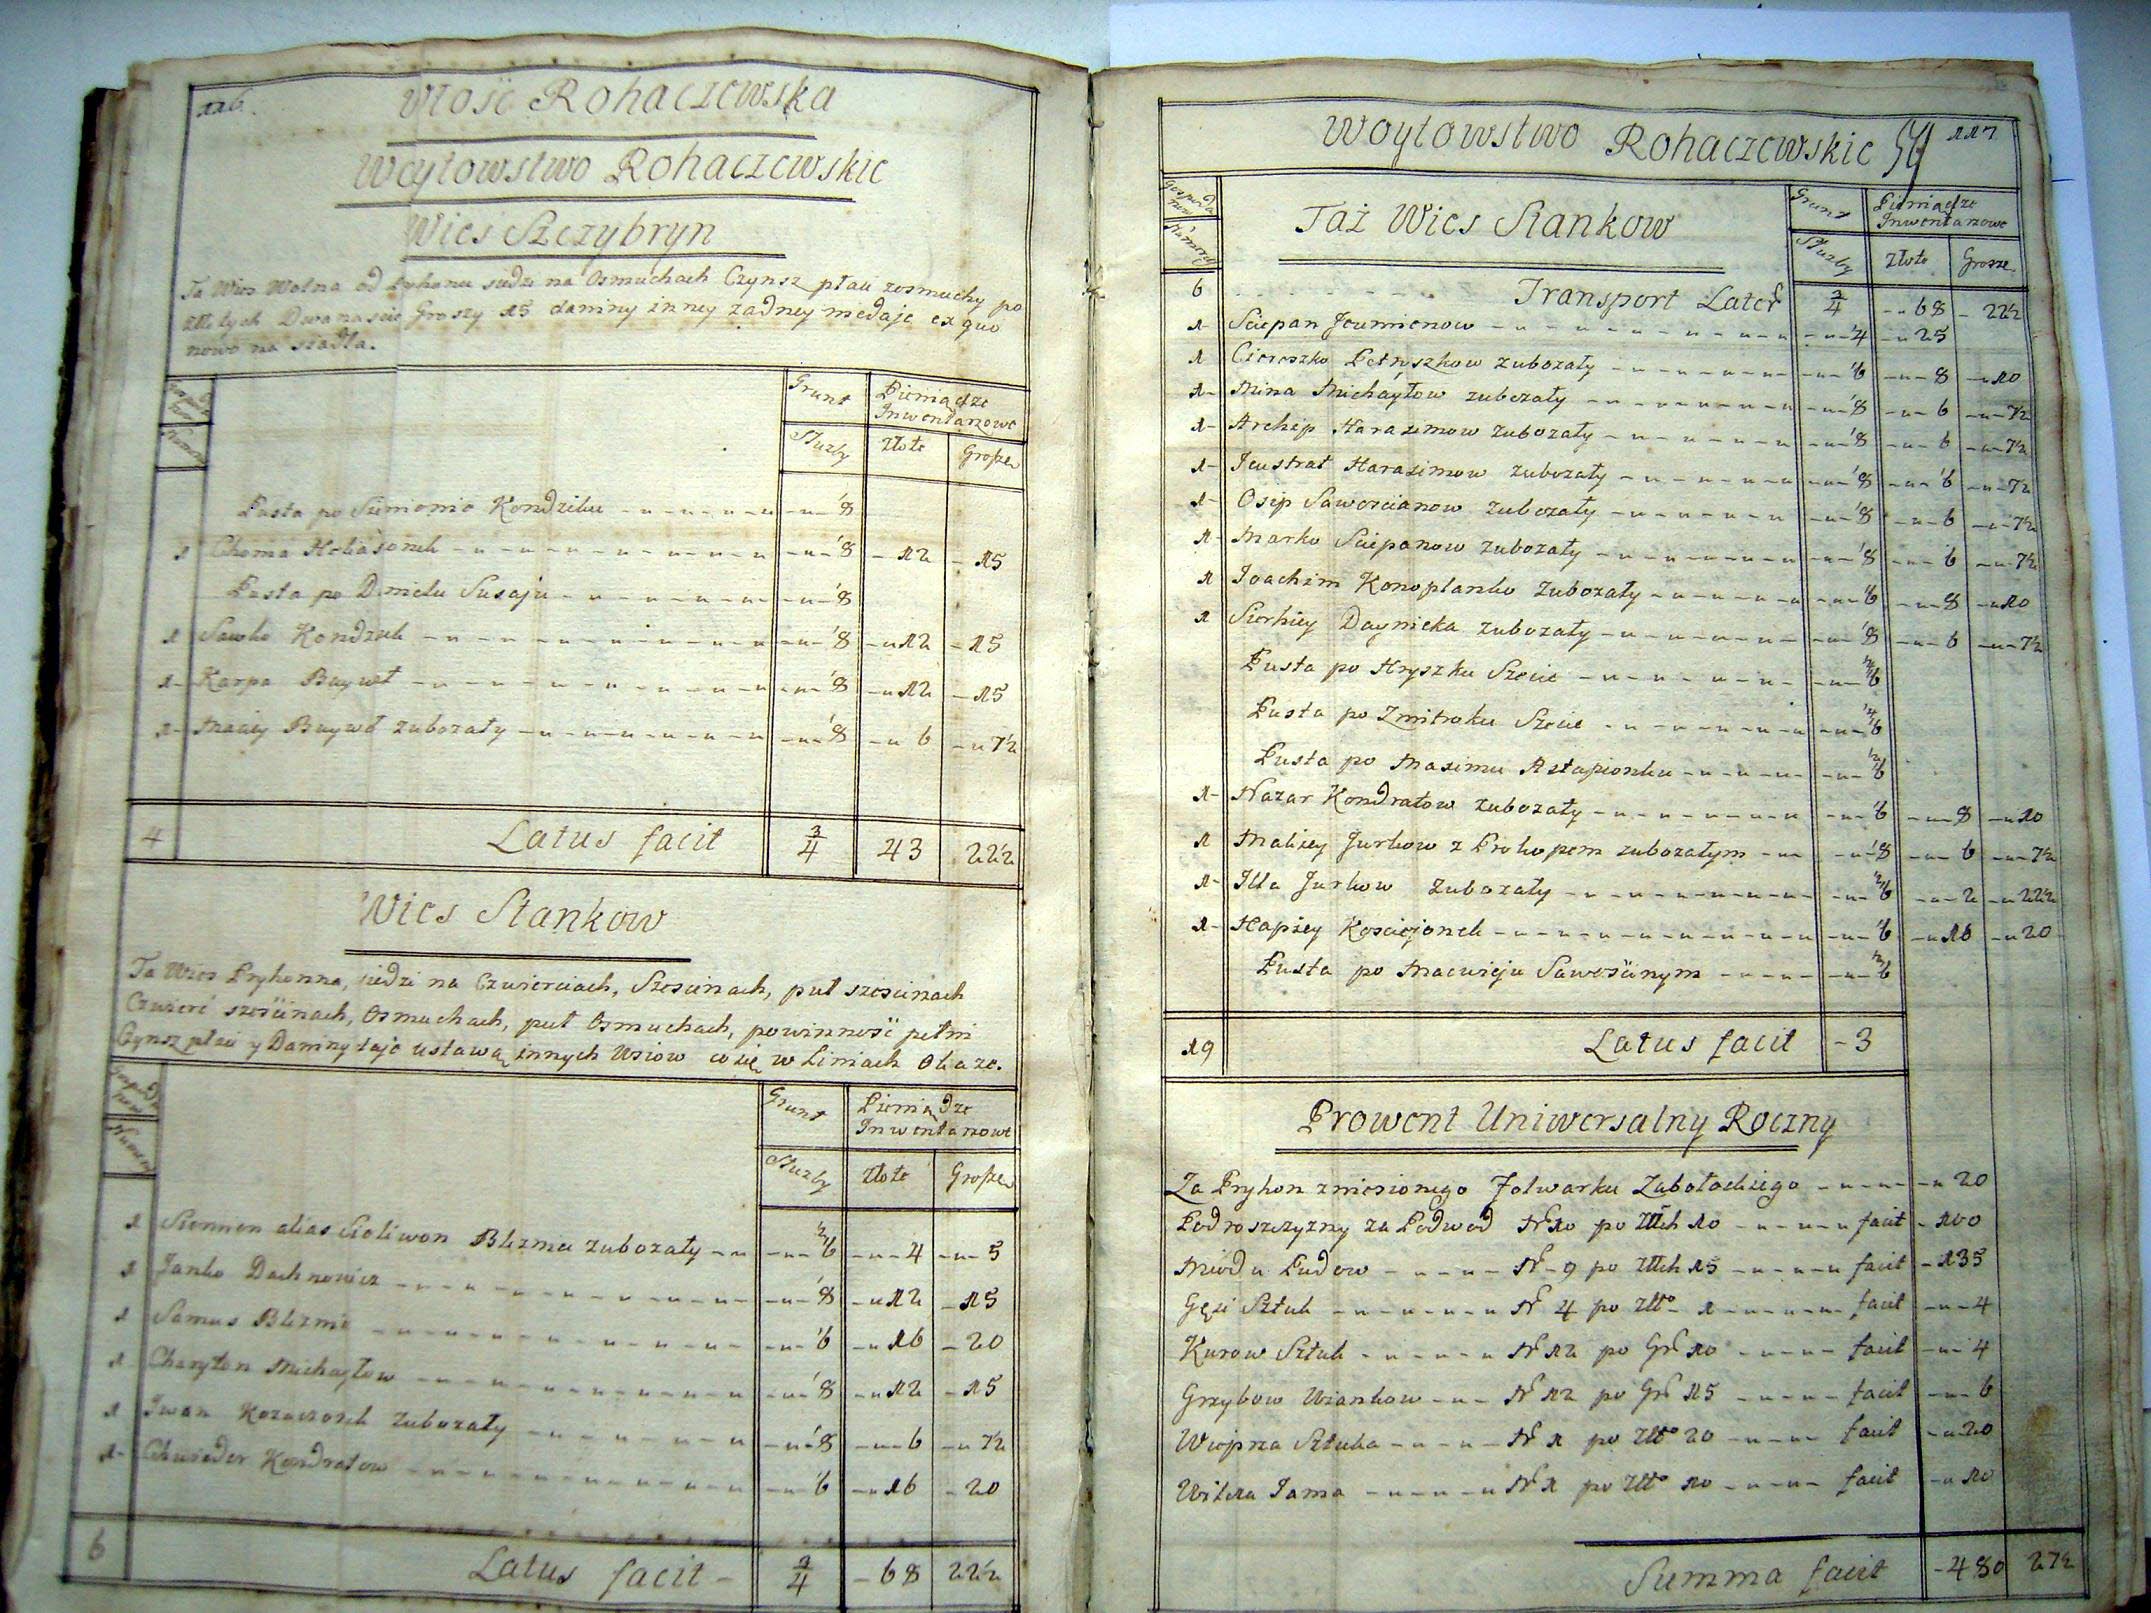 116.
Włość Rohaczewska
Woytowstwo Rohaczewskie
Wies Szczybryn
Ta Wies Wolna od Pryhonu siedzi na Osmuchach Czynsz płaci zosmuchy po
Złotych Dwanascie Groszy 15 daniny inney żadney niedaje ex quo
nowo na siadła.
Gospodarzow Numero Grunt Służby Pieniądze Inwentarzowe Złote Grosze
Pusta po Siemionie Kondziku 1/8
1 Choma Heliasonek 1/8 12 15
Pusta po Danielu Susaju 1/8
1 Sawka Kondzuk 1/8 12 15
1 Karpa Buywoł 1/8 12 15
1 Maciey Buywoł zubozały 1/8 6 7½
4 Latus facit 3/4 43 22½
Wies Stankow
Ta Wies Pryhonna, siedzi na Czwierciach, Szescinach, puł szescinach
Czwierć szescinach, Osmuchach, puł Osmuchach, powinność pełni
Czynsz płaci y Daniny daje ustawą innych Wsiow co się w Liniach Okaze.
Gospodarzow Numero Grunt Służby Pieniądze Inwentarzowe Złote Grosze
1 Siemien alias Sieliwon Blizma zubozały ½/6 4 5
1 Janko Dachnowicz 1/8 12 15
1 Samus Blizma 1/6 16 20
1 Charyton Michayłow 1/8 12 15
1 Iwan Kozaczonek zubozały 1/8 6 7½
1 Chwiedor Kondratow 1/6 16 20
6 Latus facit 3/4 68 22½
Woytowstwo Rohaczewskie 59 117
Gospodarzow Numero Taż Wies Stankow Grunt Służby Pieniądze Inwentarzowe Złote Grosze
6 Transport Later 3/4 68 22½
1 Sciepan Jeumienow 1/4 25
1 Ciereszko Petryszkow zubozały 1/6 8 10
1 Mina Michayłow zubozały 1/8 6 7½
1 Archip Harasimow zubozały 1/8 6 7½
1 Jeustrat Harasimow zubozały 1/8 6 7½
1 Osip Saworcianow zubozały 1/8 6 7½
1 Marko Sciepanow zubozały 1/8 6 7½
1 Joachim Konoplanko zubozały 1/6 8 10
1 Sierhiey Daynieka zubozały 1/8 6 7½
Pusta po Hryszku Szecie ½/6
Pusta po Zmitroku Szecie ¼/6
Pusta po Masimu Astapionku ½/6
1 Nazar Kondratow zubozały 1/6 8 10
1 Maliey Jurkow z Prokopem zubozałym 1/8 6 7½
1 Illa Jurkow zubozały ½/6 2 22½
1 Hapiey Kosciejonek 1/6 16 20
Pusta po Macwieju Sawościnym ½/6
19 Latus facit 3
Prowent Uniwersalny Roczny
Za Pryhon zniesionego Folwarku Zabołockiego 20
Podroszczyzny za Podwod Nr 10 po Złłch 10 facit 100
Miodu Pudow Nr 9 po Złłch 15 facit 135
Gęsi Sztuk Nr 4 po Złło 1 facit 4
Kurow Sztuk Nr 12 po Gr 10 facit 4
Grzybow Wiankow Nr 12 po Gr 15 facit 6
Wieprza Sztuka Nr 1 po Złło 20 facit 20
Wilcza Jama Nr 1 po Złło 10 facit 10
Summa facit 480 27½